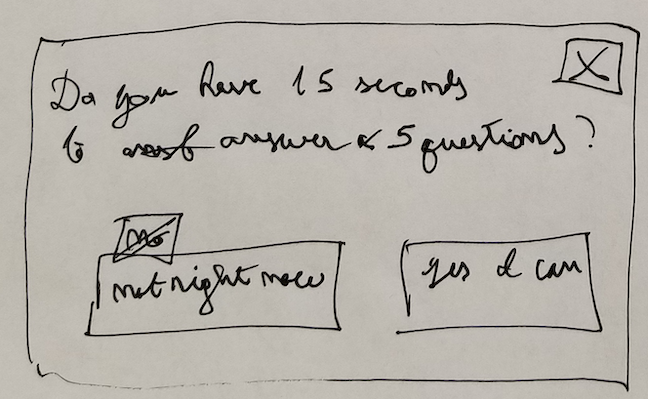 X
Do you have 15 seconds
to answer 5 questions?
not right now
yes I can